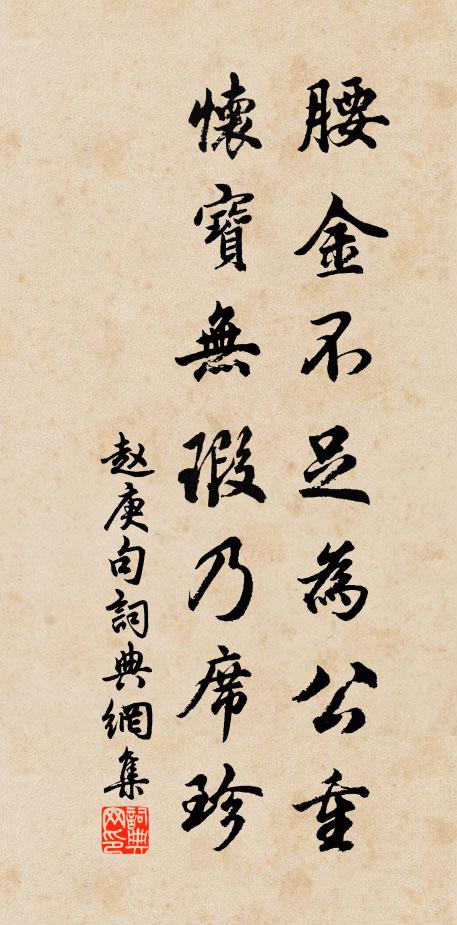 腰金不足為公重
懷寶無瑕乃席珍
赵庚句詞典網集
詞典网印